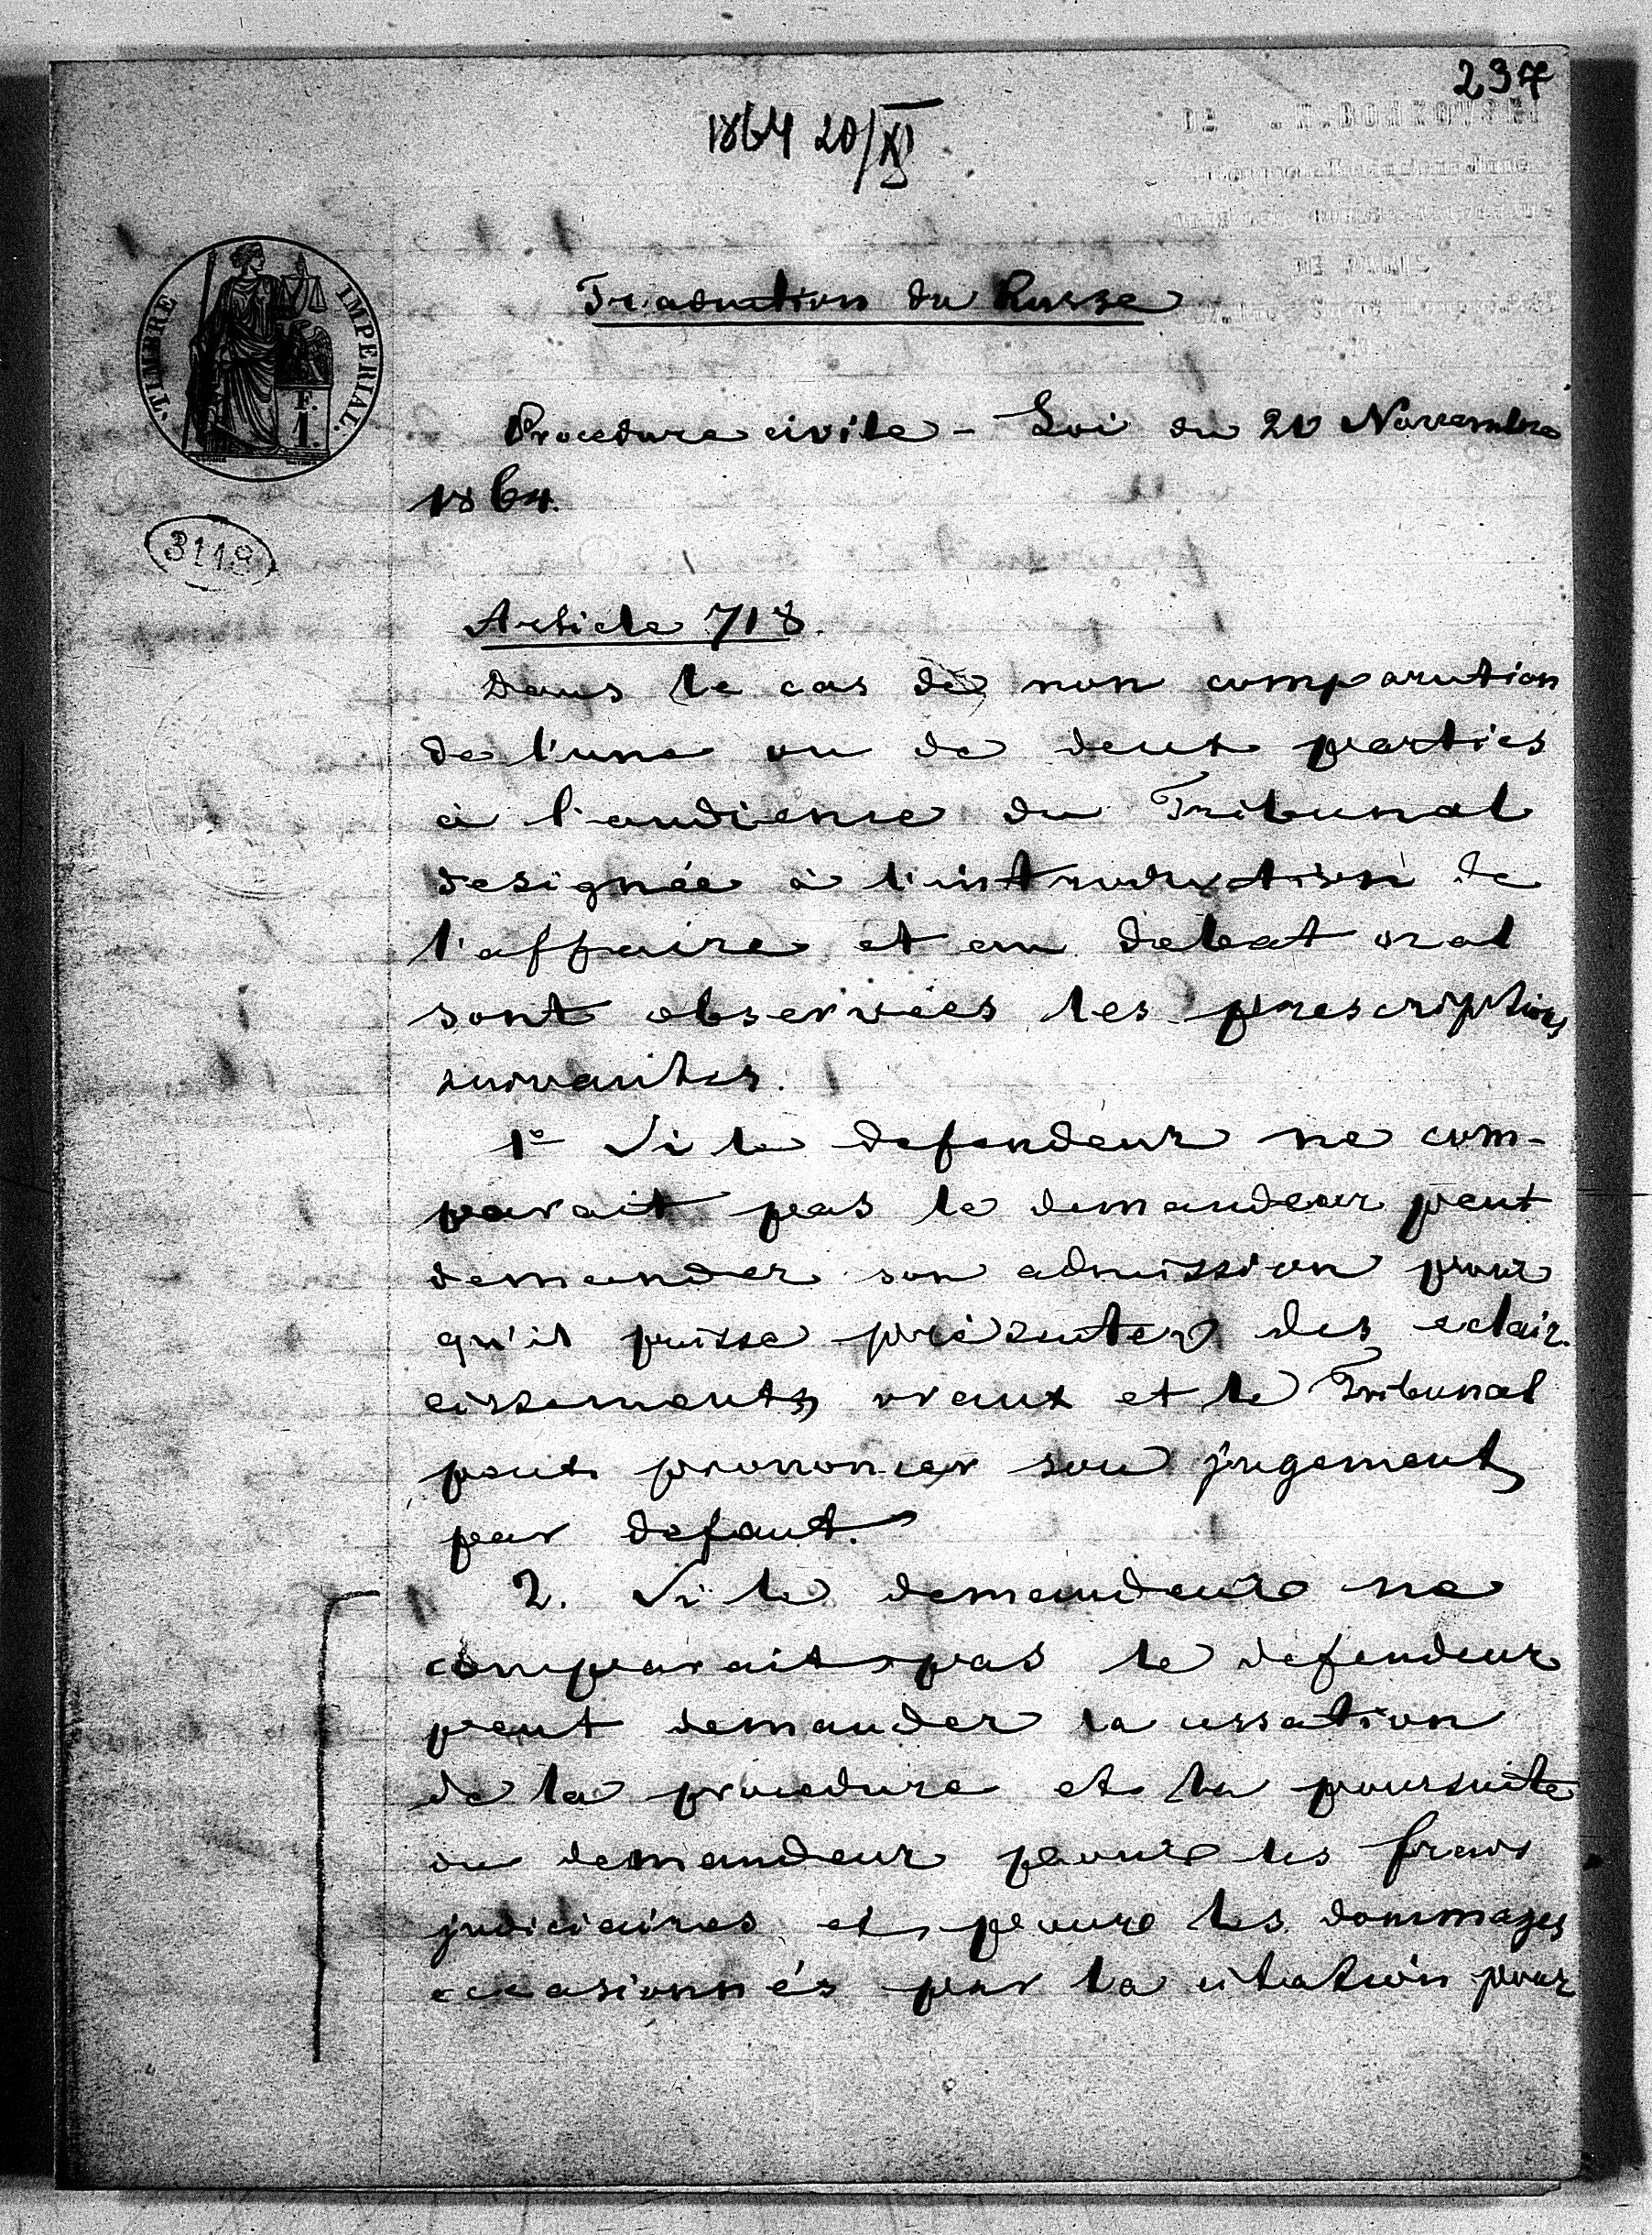 237
1864 20/XI
DE
TIMBRE IMPERIAL.
F.
1.
3118
Traduction du Russe
Procedure civile - Loi du 20 Novembre
1864.
Article 718.
Dans le cas de non comparution
de l'une ou de deux parties
à l'audience du Tribunal
designée à l'introduction de
l'affaire et au debat oral
sont observées les prescriptions
suivantes.
1º Si le defendeur ne com-
parait pas le demandeur peut
demander son admission pour
qu'il puisse présenter des eclair-
cissements oraux et le Tribunal
peut prononcer son jugement
par defaut.
2. Si le demandeur ne
comparait pas le defendeur
peut demander la cessation
de la procedure et la poursuite
du demandeur pour les frais
judiciaires et pour les dommages
occasionnés par la citation pour